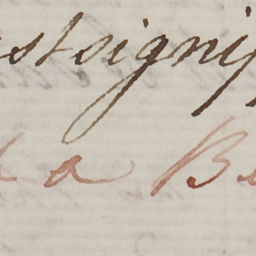 st signif
a Be